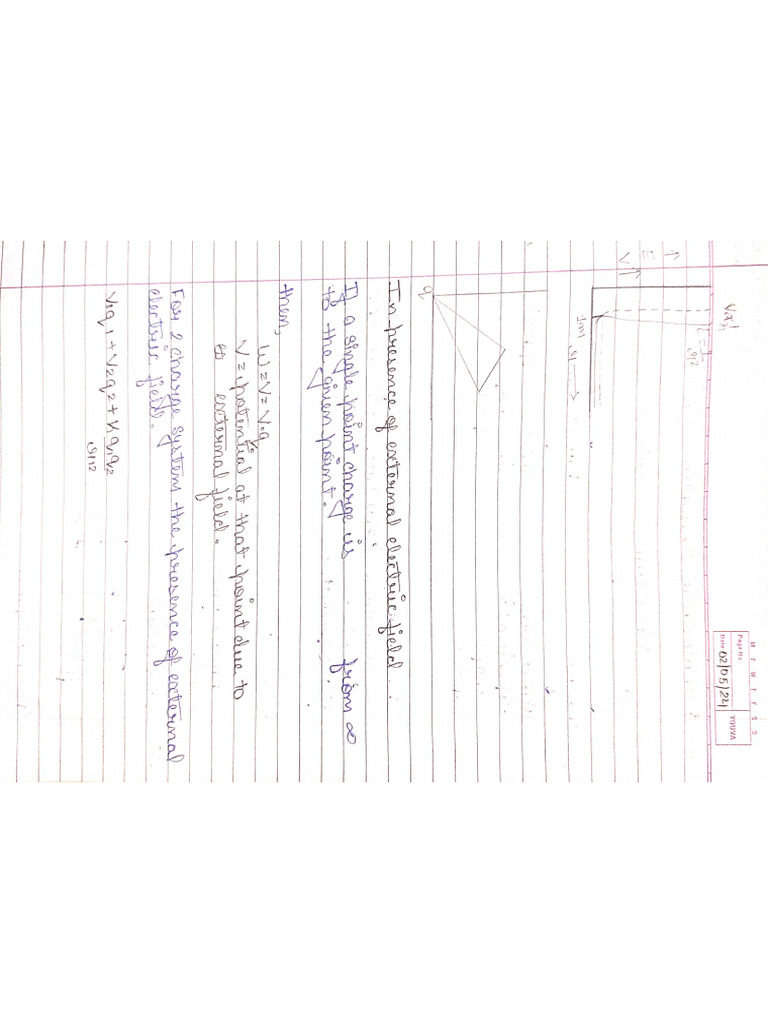 M T W T F S S
Page No.:
YOUVA
Date: 02/05/24
V∝1/r
E
V
r →
q
In presence of external electric field.
If a single point charge is from ∞
to the given point.
then,
W=V=V.q
V= potential at that point due to
external field.
For 2 charge system the presence of external
electric field.
V₁q1 + V2q2 + Kq₁q₂/r12